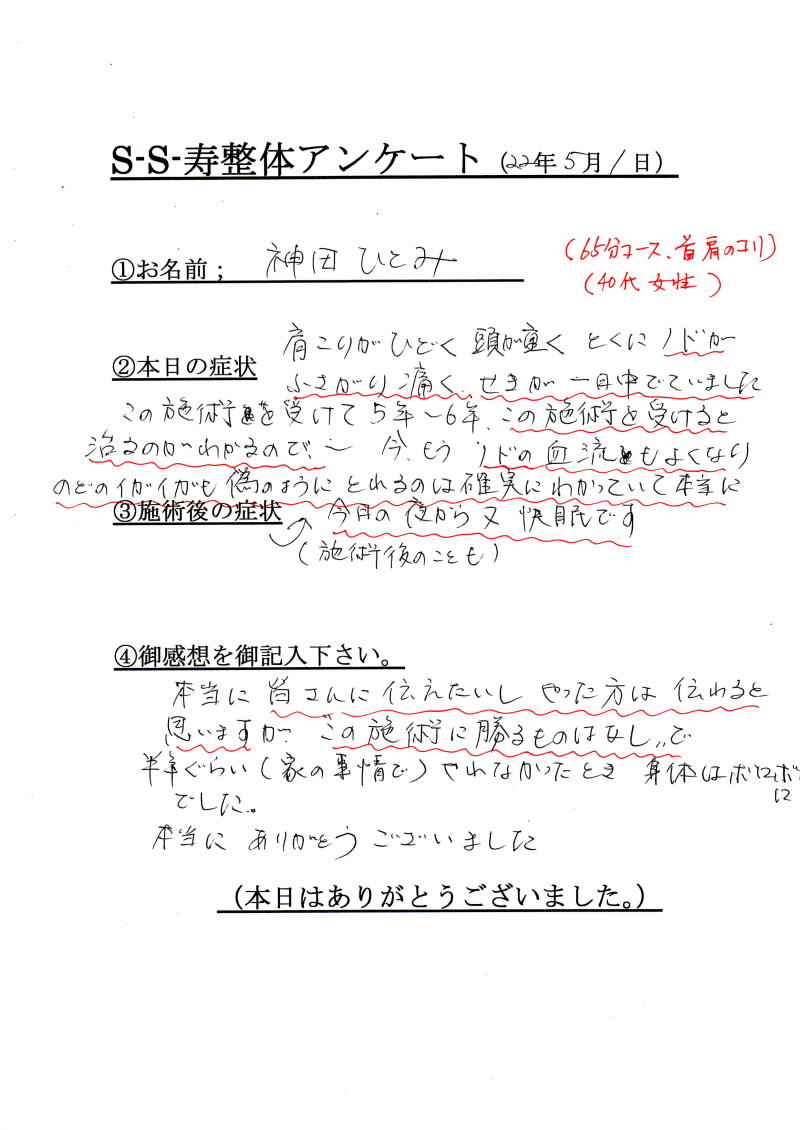 S-S-寿整体アンケート (22年5月1日)
①お名前; 神田 ひとみ
(65分コース、首肩のコリ)
(40代 女性 )
肩こりがひどく 頭が重く とくに ノドが
②本日の症状
ふさがり 痛く、せきが 一日中でていました
この施術を受けて 5年〜6年、この施術を受けると
治るのがわかるので、〜 今、もう ノドの血流もよくなり
のどのイガイガも 偽のように とれるのは確実に わかっていて 本当に
③施術後の症状 今日の夜から又 快眠です
(施術後のことも)
④御感想を御記入下さい。
本当に 皆さんに 伝えたいし やった方は 伝わると
思いますが この施術に勝るものはなし〃で
半年ぐらい(家の事情で)やれなかったとき 身体はボロボロ
に
でした。
本当に ありがとう ございました
(本日はありがとうございました。)